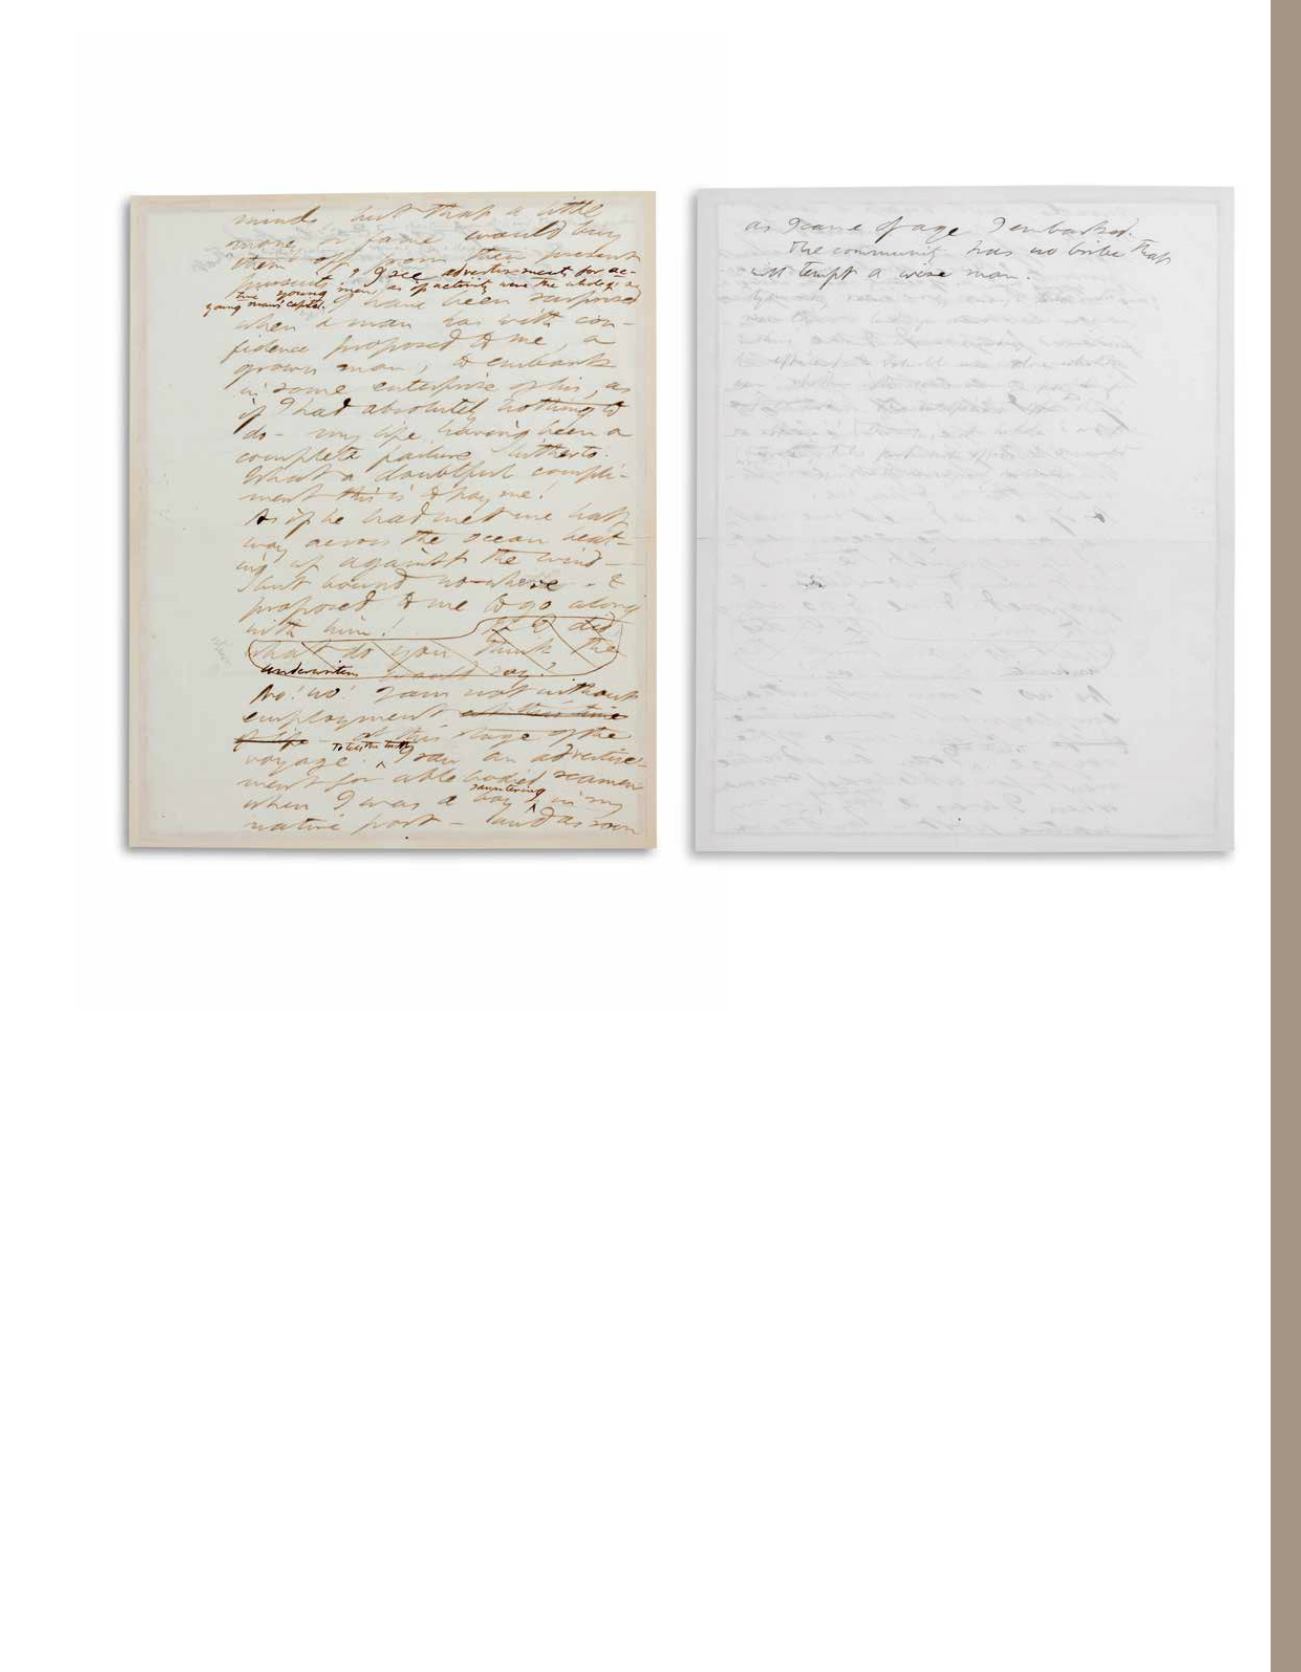 minds, but that a little
money or fame would buy
them off from their present
pursuit. I see advertisements for ac-
tive young men, as if activity were the whole of a
young man's capital. I have been surprised
when a man has with con-
fidence proposed to me, a
grown man, to embark
in some enterprise of his, as
if I had absolutely nothing to
do - my life having been a
complete failure hitherto.
What a doubtful compli-
ment this is to pay me!
As if he had met me half
way across the ocean beat-
ing up against the wind -
but bound no-where - &
proposed to me to go along
with him! If I did
what do you think the
underwriters would say?
No! no! I am not without
employment at this time
of life - at this stage of the
To tell the truth
voyage. ^ I saw an advertise-
ment for able bodied seamen
sauntering
when I was a boy ^ in my
native port - and as soon
as I came of age I embarked.
The community has no bribe that
will tempt a wise man.